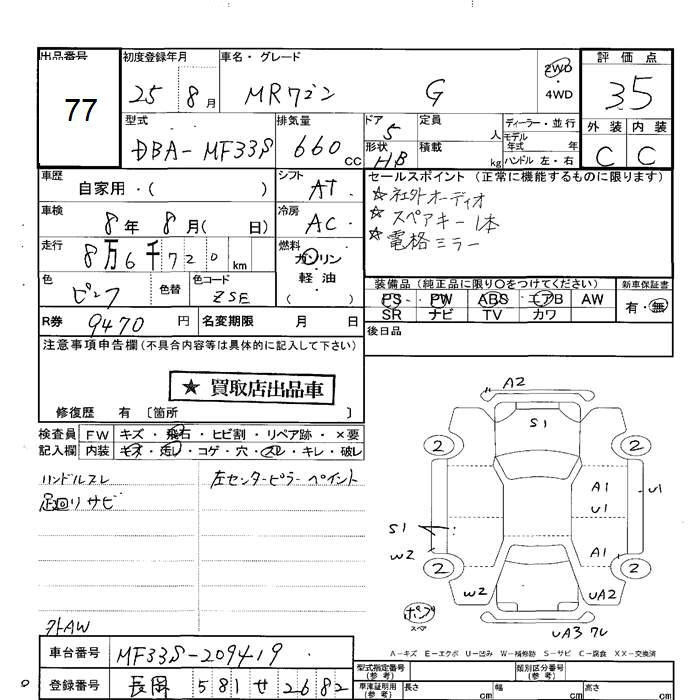 出品番号 初度登録年月 車名・グレード 評価点
77 25 8月 MRワゴン G 2WD ・4WD 3.5
型式 排気量 ドア 定員 人 ディーラー・並行 外装 内装
DBA-MF33S 660 CC 5 モデル年式 年 C C
形状 HB 積載 kg ハンドル 左・右
車歴 自家用・( ) シフト AT セールスポイント (正常に機能するものに限ります)
車検 8年 8月( 日) 冷房 AC ☆社外オーディオ
☆スペアキー1本
走行 8万6千720km 燃料 ガソリン ☆電格ミラー
軽・油
( )
色 ピンク 色替 色コード ZSE 装備品 (純正品に限り○をつけてください) 新車保証書
PS PW ABS エアB AW 有・無
R券 9470円 名変期限 月 日 SR ナビ TV カワ
注意事項申告欄(不具合内容等は具体的に記入して下さい) 後日品
★ 買取店出品車
修復歴 有 〔箇所 〕
検査員 FW キズ・飛石・ヒビ割・リペア跡・×要
記入欄 内装 キズ・汚レ・コゲ・穴・スレ・キレ・破レ
ハンドルスレ 左センターピラーペイント
足回りサビ
A2
S1
2 2
A1 U1
U1
S1
W2 A1
2 2
W2 UA2
ポンプ
スペア
UA3 ワレ
外AW
A-キズ E-エクボ U-凹み W-補修跡 S-サビ C-腐食 XX-交換済
車台番号 MF33S-209419
型式指定番号(参考) 類別区分番号(参考)
登録番号 長岡 581 せ 2682
車庫証明用(参考) 長さ cm 幅 cm 高さ cm